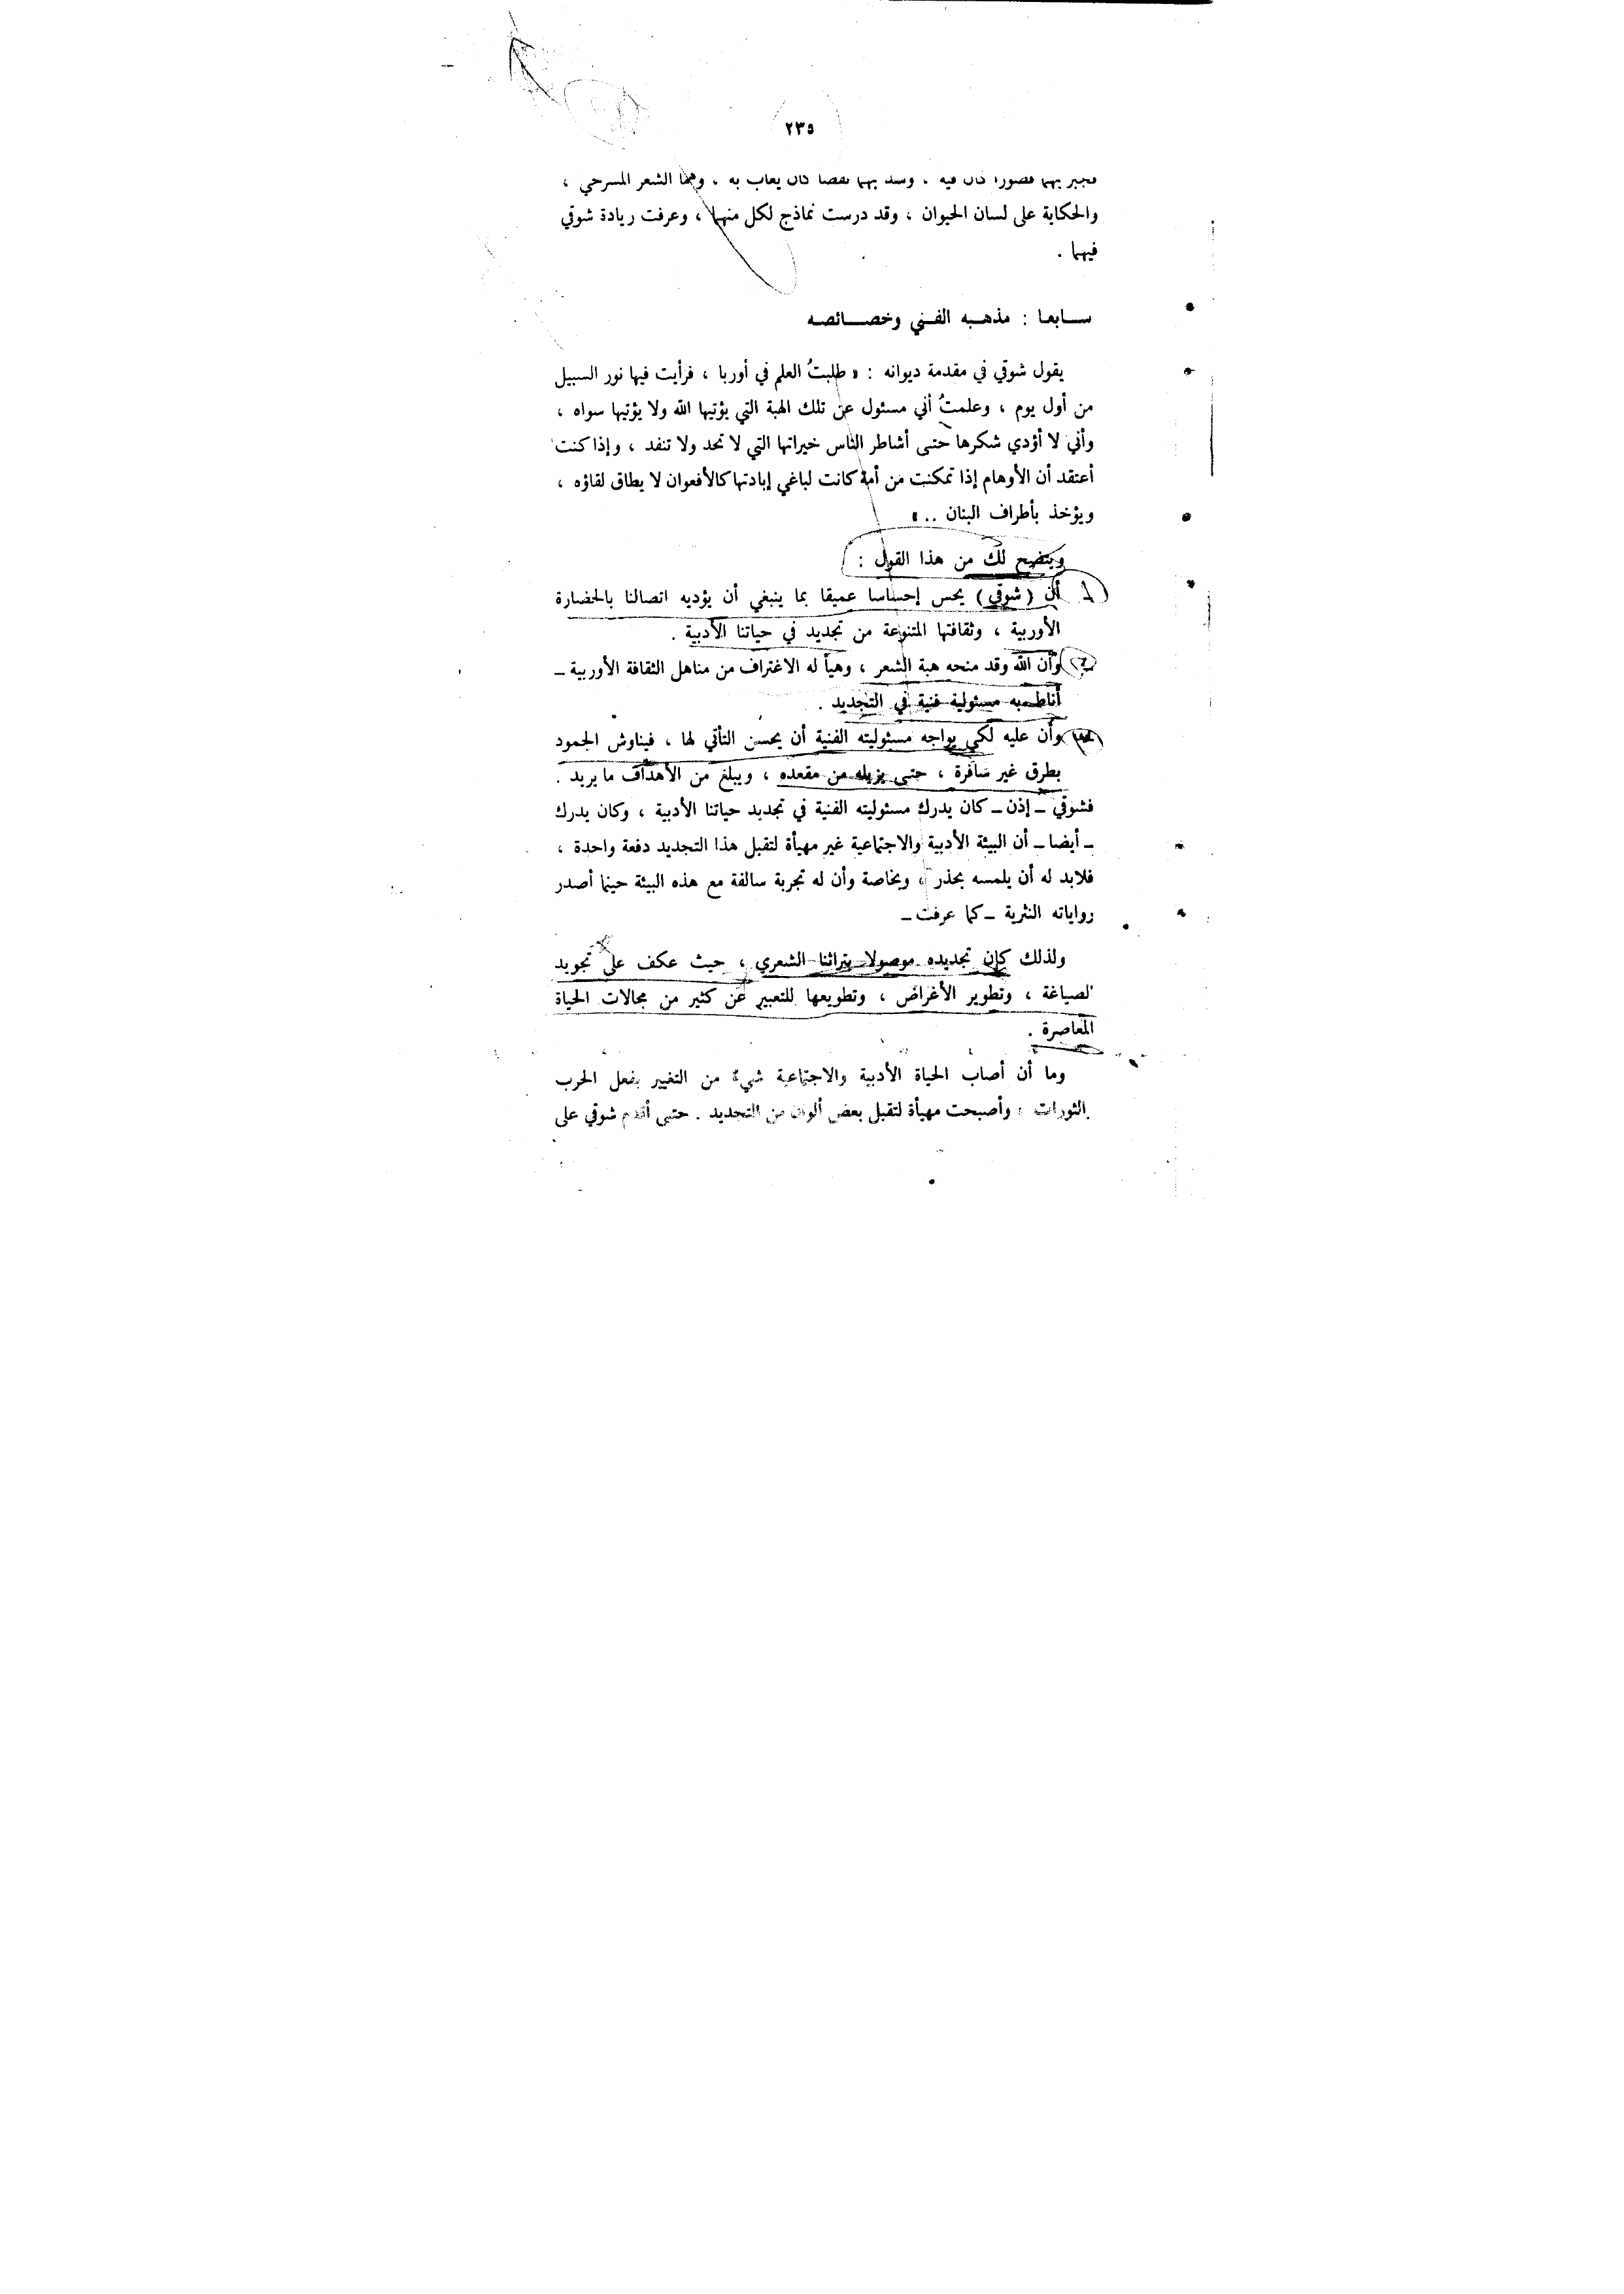 ٢٣٥
فجبر بهما قصورا كان فيه ، وسد بهما نقصا كان يعاب به ، وهما الشعر المسرحي ،
والحكاية على لسان الحيوان ، وقد درست نماذج لكل منهما ، وعرفت ريادة شوقي
فيهما .
سابعا : مذهبه الفني وخصائصه
يقول شوقي في مقدمة ديوانه : « طلبتُ العلم في أوربا ، فرأيت فيها نور السبيل
من أول يوم ، وعلمتُ أني مسئول عن تلك الهبة التي يؤتيها الله ولا يؤتيها سواه ،
وأني لا أؤدي شكرها حتى أشاطر الناس خيراتها التي لا تحد ولا تنفد ، وإذا كنت
أعتقد أن الأوهام إذا تمكنت من أمة كانت لباغي إبادتها كالأفعوان لا يطاق لقاؤه ،
ويؤخذ بأطراف البنان .. »
ويتضح لك من هذا القول :
١ أن ( شوقي ) يحس إحساسا عميقا بما ينبغي أن يؤديه اتصالنا بالحضارة
الأوربية ، وثقافتها المتنوعة من تجديد في حياتنا الأدبية .
وأن الله وقد منحه هبة الشعر ، وهيأ له الاغتراف من مناهل الثقافة الأوربية ـ
أناط به مسئولية فنية في التجديد .
وأن عليه لكي يواجه مسئوليته الفنية أن يحسن التأتي لها ، فيناوش الجمود
بطرق غير سافرة ، حتى يزيله من مقعده ، ويبلغ من الأهداف ما يريد .
فشوقي ـ إذن ـ كان يدرك مسئوليته الفنية في تجديد حياتنا الأدبية ، وكان يدرك
ـ أيضا ـ أن البيئة الأدبية والاجتماعية غير مهيأة لتقبل هذا التجديد دفعة واحدة ،
فلابد له أن يلمسه بحذر ، وبخاصة وأن له تجربة سالفة مع هذه البيئة حينما أصدر
رواياته النثرية ـ كما عرفت ـ
ولذلك كان تجديده موصولا بتراثنا الشعري ، حيث عكف على تجويد
الصياغة ، وتطوير الأغراض ، وتطويعها للتعبير عن كثير من مجالات الحياة
المعاصرة .
وما أن أصاب الحياة الأدبية والاجتماعية شيء من التغيير بفعل الحرب
والثورات ، وأصبحت مهيأة لتقبل بعض ألوان من التجديد . حتى أقدم شوقي على